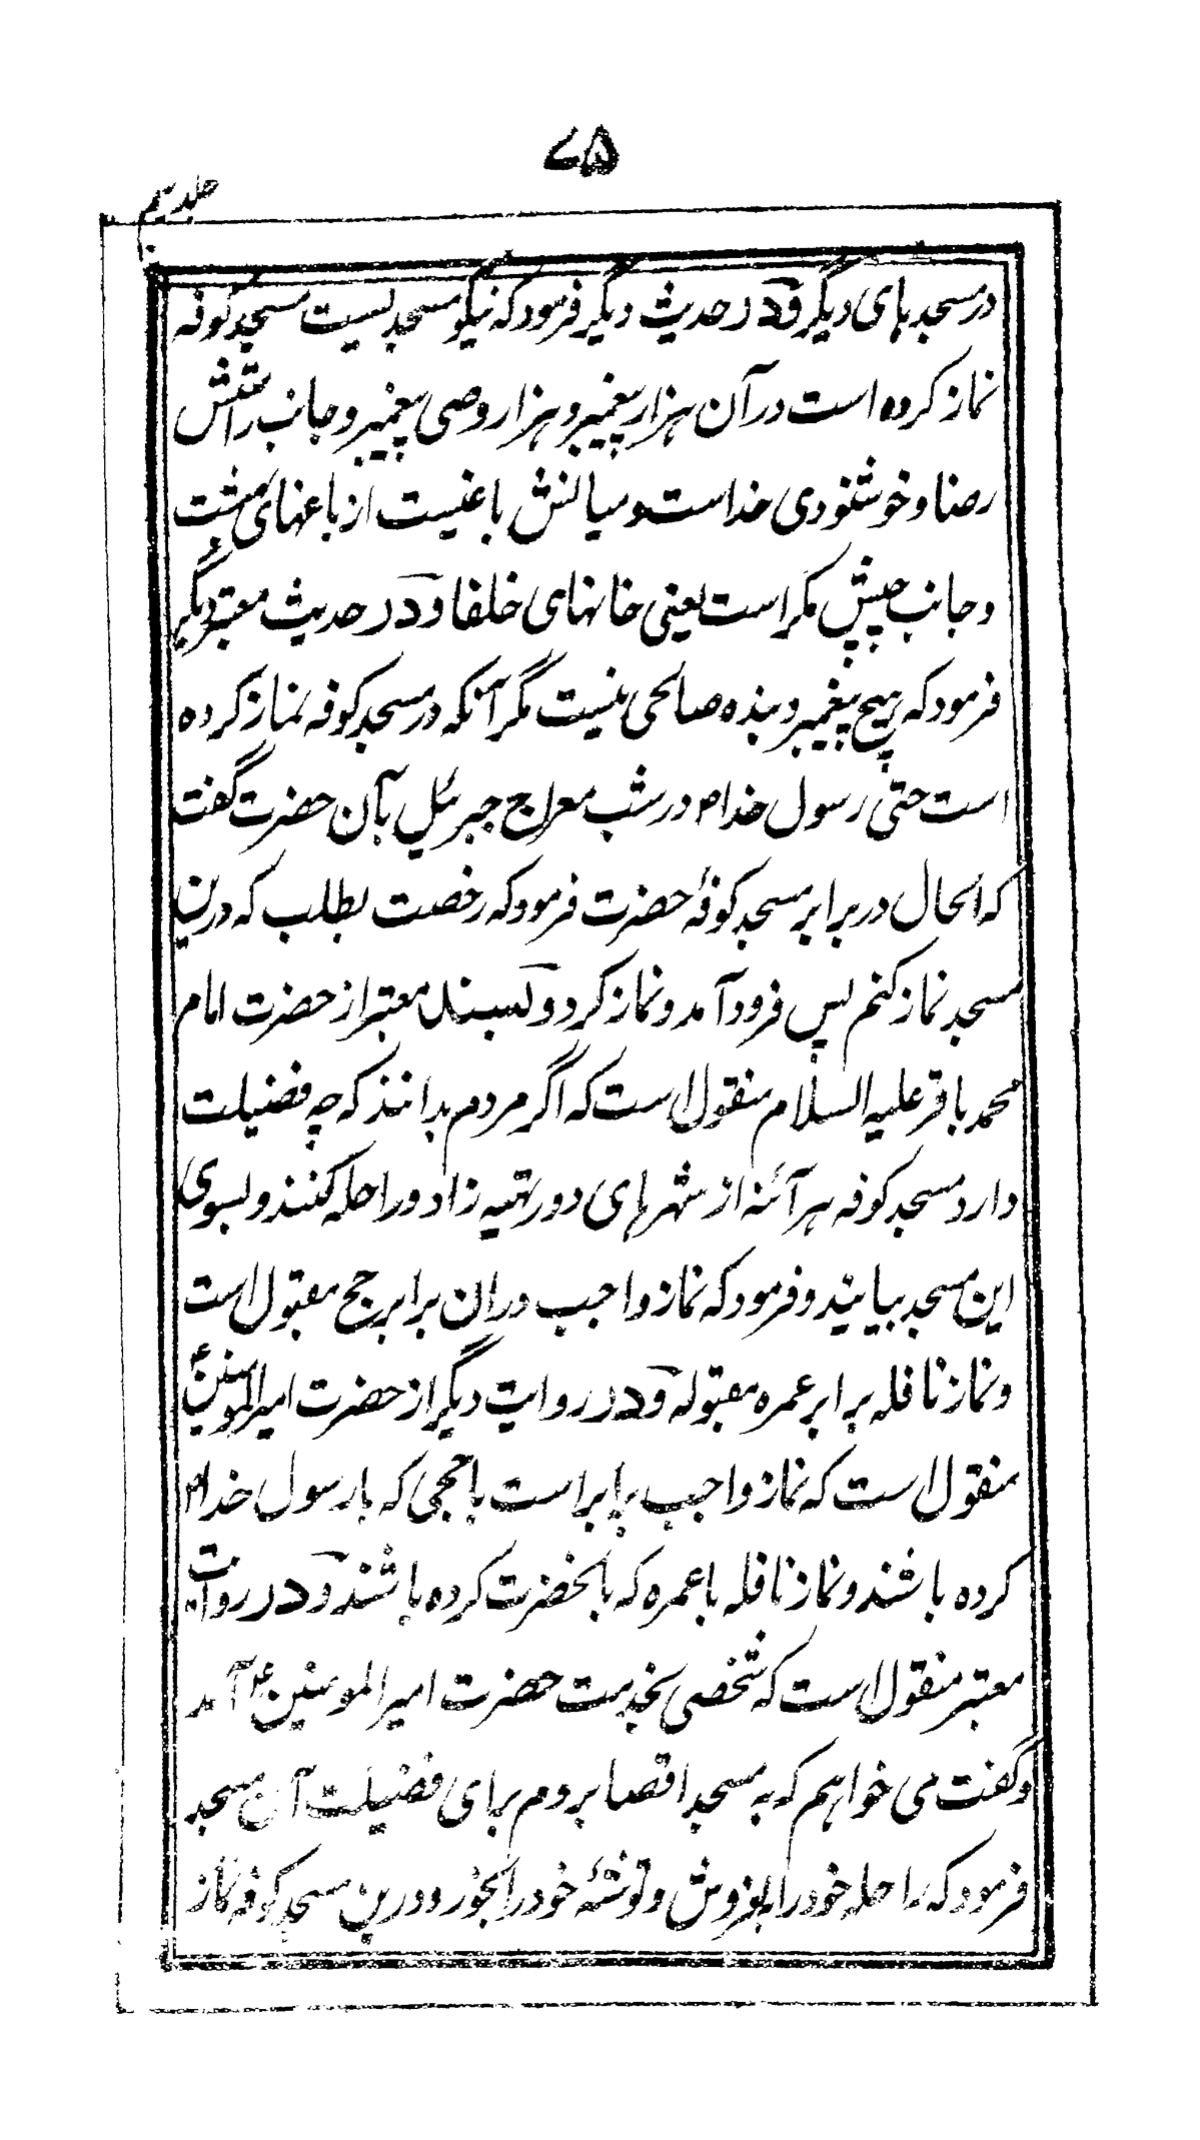 ۷۵
جلد سیم
در مسجدهای دیگر و در حدیث دیگر فرمود که نیکو مسجدیست مسجد کوفه
نماز کرده است در آن هزار پیغمبر و هزار وصی پیغمبر و جانب راستش
رضا و خوشنودی خداست و میانش باغیست از باغهای بهشت
و جانب چپش مکر است یعنی خانهای خلفا و در حدیث معتبر دیگر
فرمود که هیچ پیغمبر و بنده صالحی نیست مگر آنکه در مسجد کوفه نماز کرده
است حتی رسول خدا ص در شب معراج جبرئیل بآن حضرت گفت
که الحال در برابر مسجد کوفهٔ حضرت فرمود که رخصت بطلب که درین
مسجد نماز کنم پس فرود آمد و نماز کرد و بسند معتبر از حضرت امام
محمد باقر علیه السلام منقول است که اگر مردم بدانند که چه فضیلت
دارد مسجد کوفه هر آئنه از شهرهای دور تهیه زاد و راحله کنند و بسوی
این مسجد بیایند و فرمود که نماز واجب در ان برابر حج مقبول است
و نماز نافله برابر عمره مقبوله و در روایت دیگر از حضرت امیرالمومنین ع
منقول است که نماز واجب برابر است با حجی که با رسول خدا ص
کرده باشند و نماز نافله با عمره که بآنحضرت کرده باشند و در روایت
معتبر منقول است که شخصی بخدمت حضرت امیر المومنین ع آمد
و گفت می خواهم که به مسجد اقصا بروم برای فضیلت آن مسجد
فرمود که راحله خود را بفروش و توشهٔ خود را بخور و درین مسجد کوفه نماز